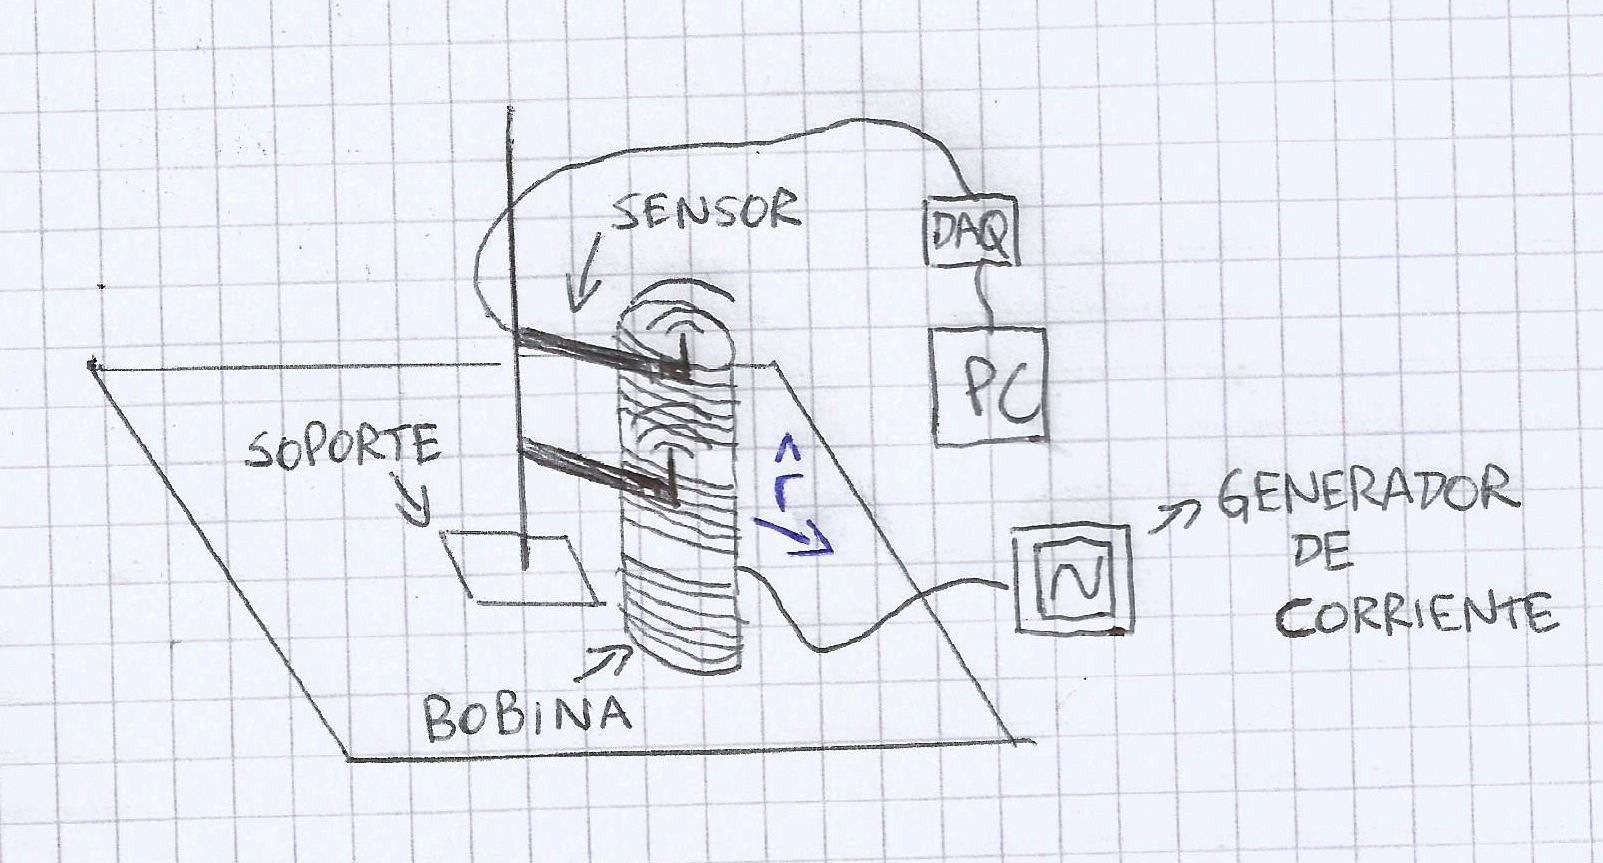 SENSOR
DAQ
PC
SOPORTE
r̂
GENERADOR
DE
CORRIENTE
BOBINA